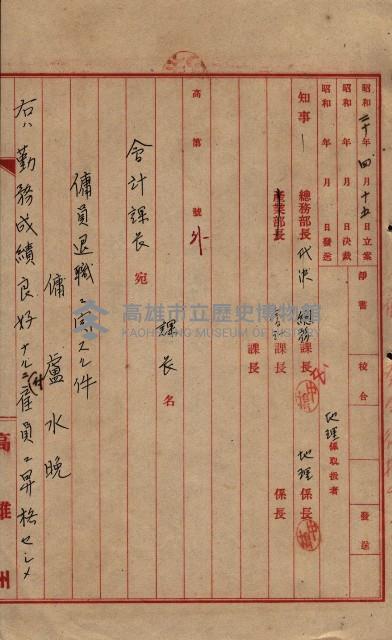 昭和二十年四月十五日立案
昭和 年 月 日決裁
昭和 年 月 日發送
淨書
校合
發送
地理係取扱者
知事
總務部長 代決
總務課長
地理係長
產業部長
會計課長
係長
課長
高第 號 外
課長名
會計課長 宛
傭員退職ニ関スル件
傭 盧水晚
右ハ勤務成績良好ナルニ付雇員ニ昇格セシメ
高雄州
高雄市立歷史博物館
KAOHSIUNG MUSEUM OF HISTORY